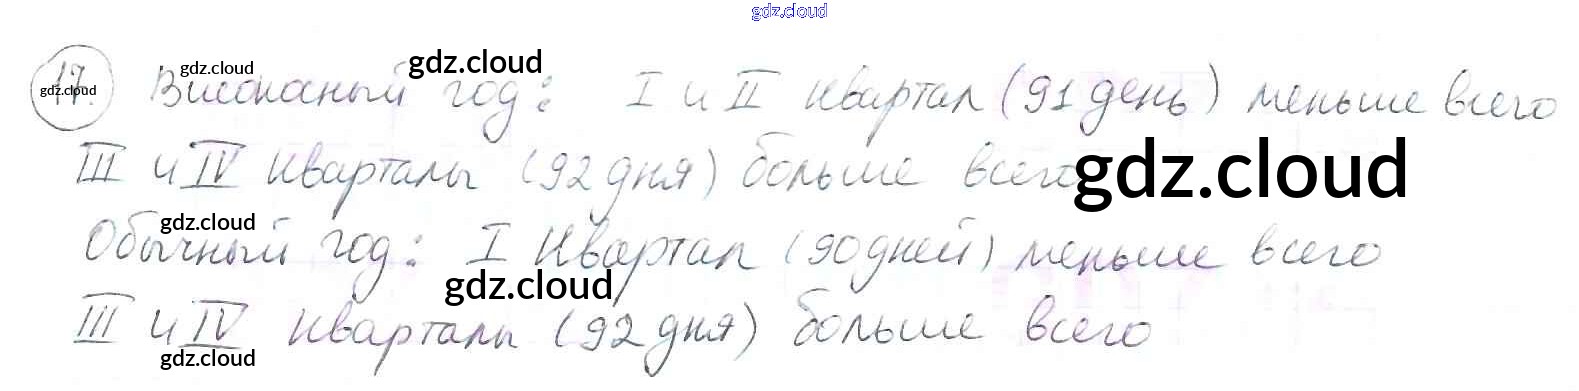 gdz.cloud
17. Високосный год: I и II квартал (91 день) меньше всего
III и IV кварталы (92 дня) больше всего
Обычный год: I квартал (90 дней) меньше всего
III и IV кварталы (92 дня) больше всего
gdz.cloud
gdz.cloud
gdz.cloud
gdz.cloud
gdz.cloud
gdz.cloud
gdz.cloud